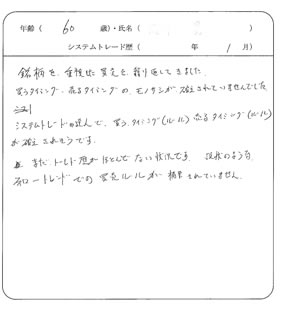 年齢( 60 歳)・氏名(
システムトレード歴( 年 1 月)
銘柄を 売買を繰り返してきました
買うタイミング・売るタイミングの モノサシが 確立されていませんでした
システムトレードの 選んで、買うタイミング(ルール) 売るタイミング(ルール)
が 確立されそうです。
まだ トレード歴が ほとんど ない状況です 現状のような
トレンドでの 売買ルールが 構築されていません。